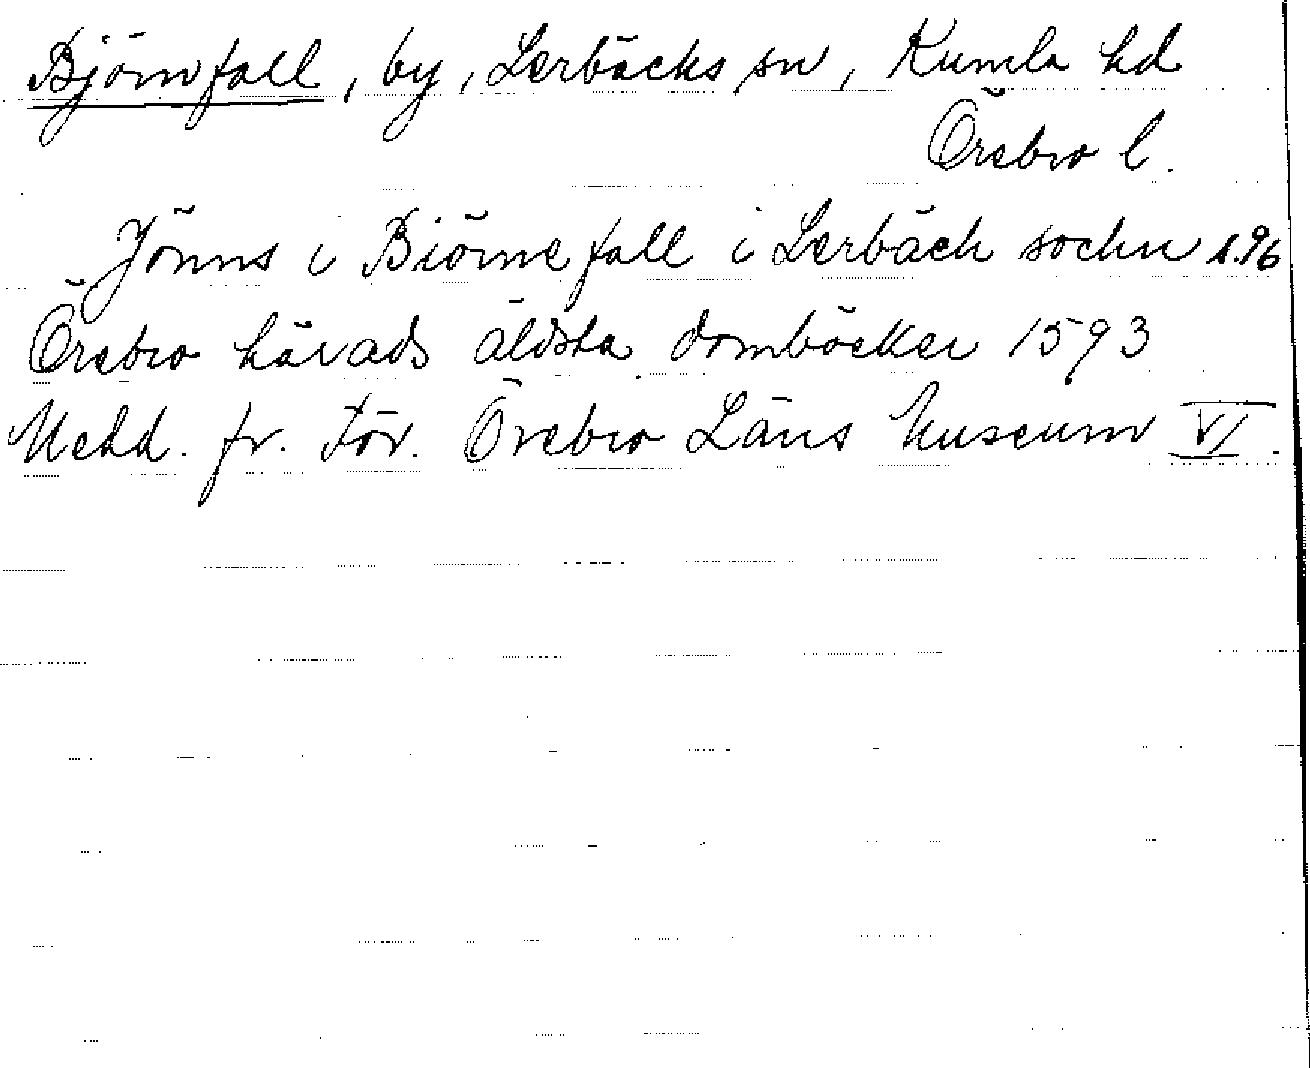 Björnfall, by, Lerbäcks sn, Kumla hd
Örebro l.
Jönns i Biörnefall i Lerbäck sochn s. 96
Örebro härads äldsta domböcker 1593
Medd. fr. För. Örebro Läns Museum VI.